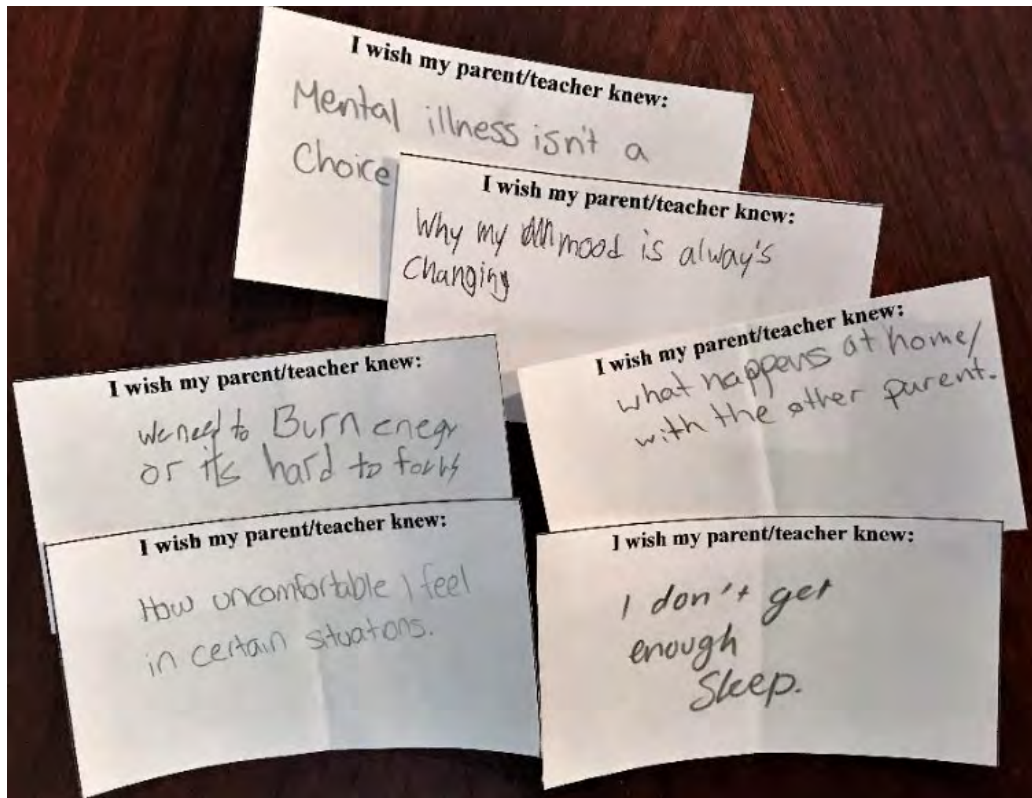 I wish my parent/teacher knew:
Mental illness isn't a
Choice
I wish my parent/teacher knew:
Why my mood is alway's
Changing
I wish my parent/teacher knew:
We need to Burn enegy
or its hard to focus
I wish my parent/teacher knew:
what happens at home/
with the other parent.
I wish my parent/teacher knew:
How uncomfortable I feel
in certain situatons.
I wish my parent/teacher knew:
I don't get
enough
Sleep.